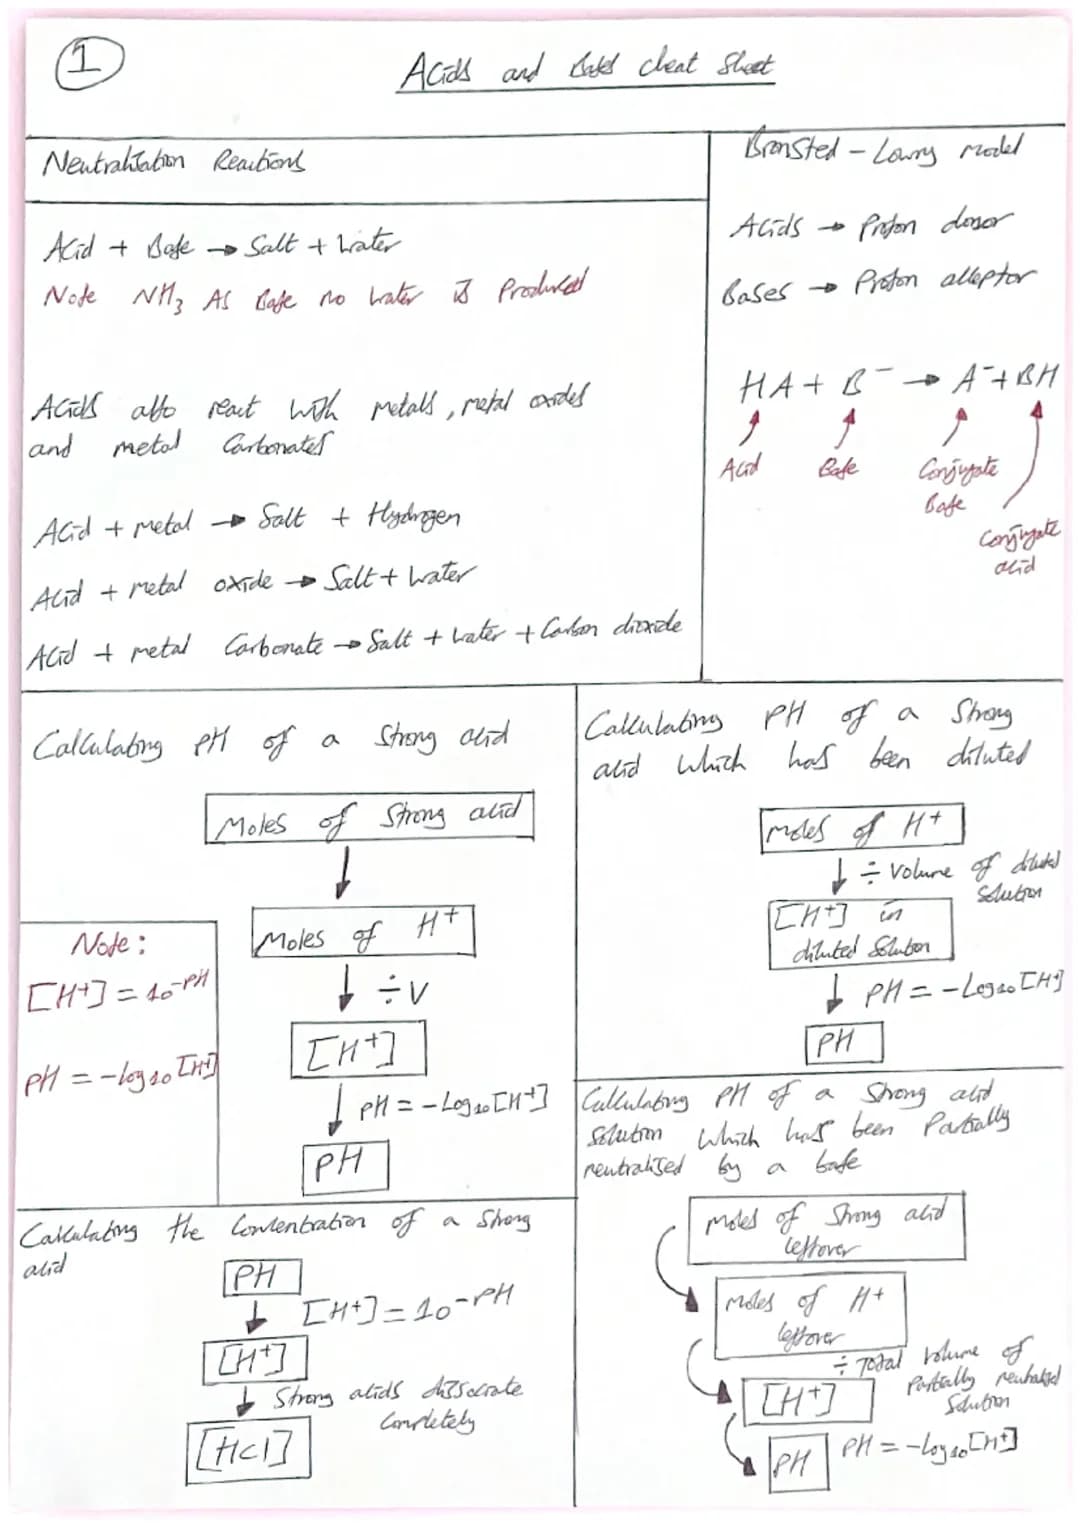 1
Acids and Bases cheat sheet
Neutralisation Reactions
Acid + Base → Salt + Water
Note NH₃ As Base no water is Produced
Acids also react with metals, metal oxides
and metal Carbonates
Acid + metal → Salt + Hydrogen
Acid + metal oxide → Salt + Water
Acid + metal Carbonate → Salt + Water + Carbon dioxide
Bronsted - Lowry model
Acids → Proton donor
Bases → Proton acceptor
HA + B⁻ → A⁻ + BH
Acid Base Conjugate
Base
Conjugate
acid
Calculating PH of a Strong acid
Moles of Strong acid
Moles of H⁺
÷ V
[H⁺]
PH = -Log₁₀[H⁺]
PH
Note:
[H⁺] = 10⁻ᴾᴴ
PH = -log₁₀[H⁺]
Calculating PH of a Strong
acid which has been diluted
moles of H⁺
÷ Volume of diluted
Solution
[H⁺] in
diluted Solution
PH = -Log₁₀[H⁺]
PH
Calculating the Concentration of a Strong
acid
PH
[H⁺] = 10⁻ᴾᴴ
[H⁺]
Strong acids dissociate
Completely
[HCl]
Calculating PH of a Strong acid
Solution which has been Partially
neutralised by a base
moles of Strong acid
leftover
moles of H⁺
leftover
÷ Total Volume of
Partially neutralised
Solution
[H⁺]
PH = -log₁₀[H⁺]
PH